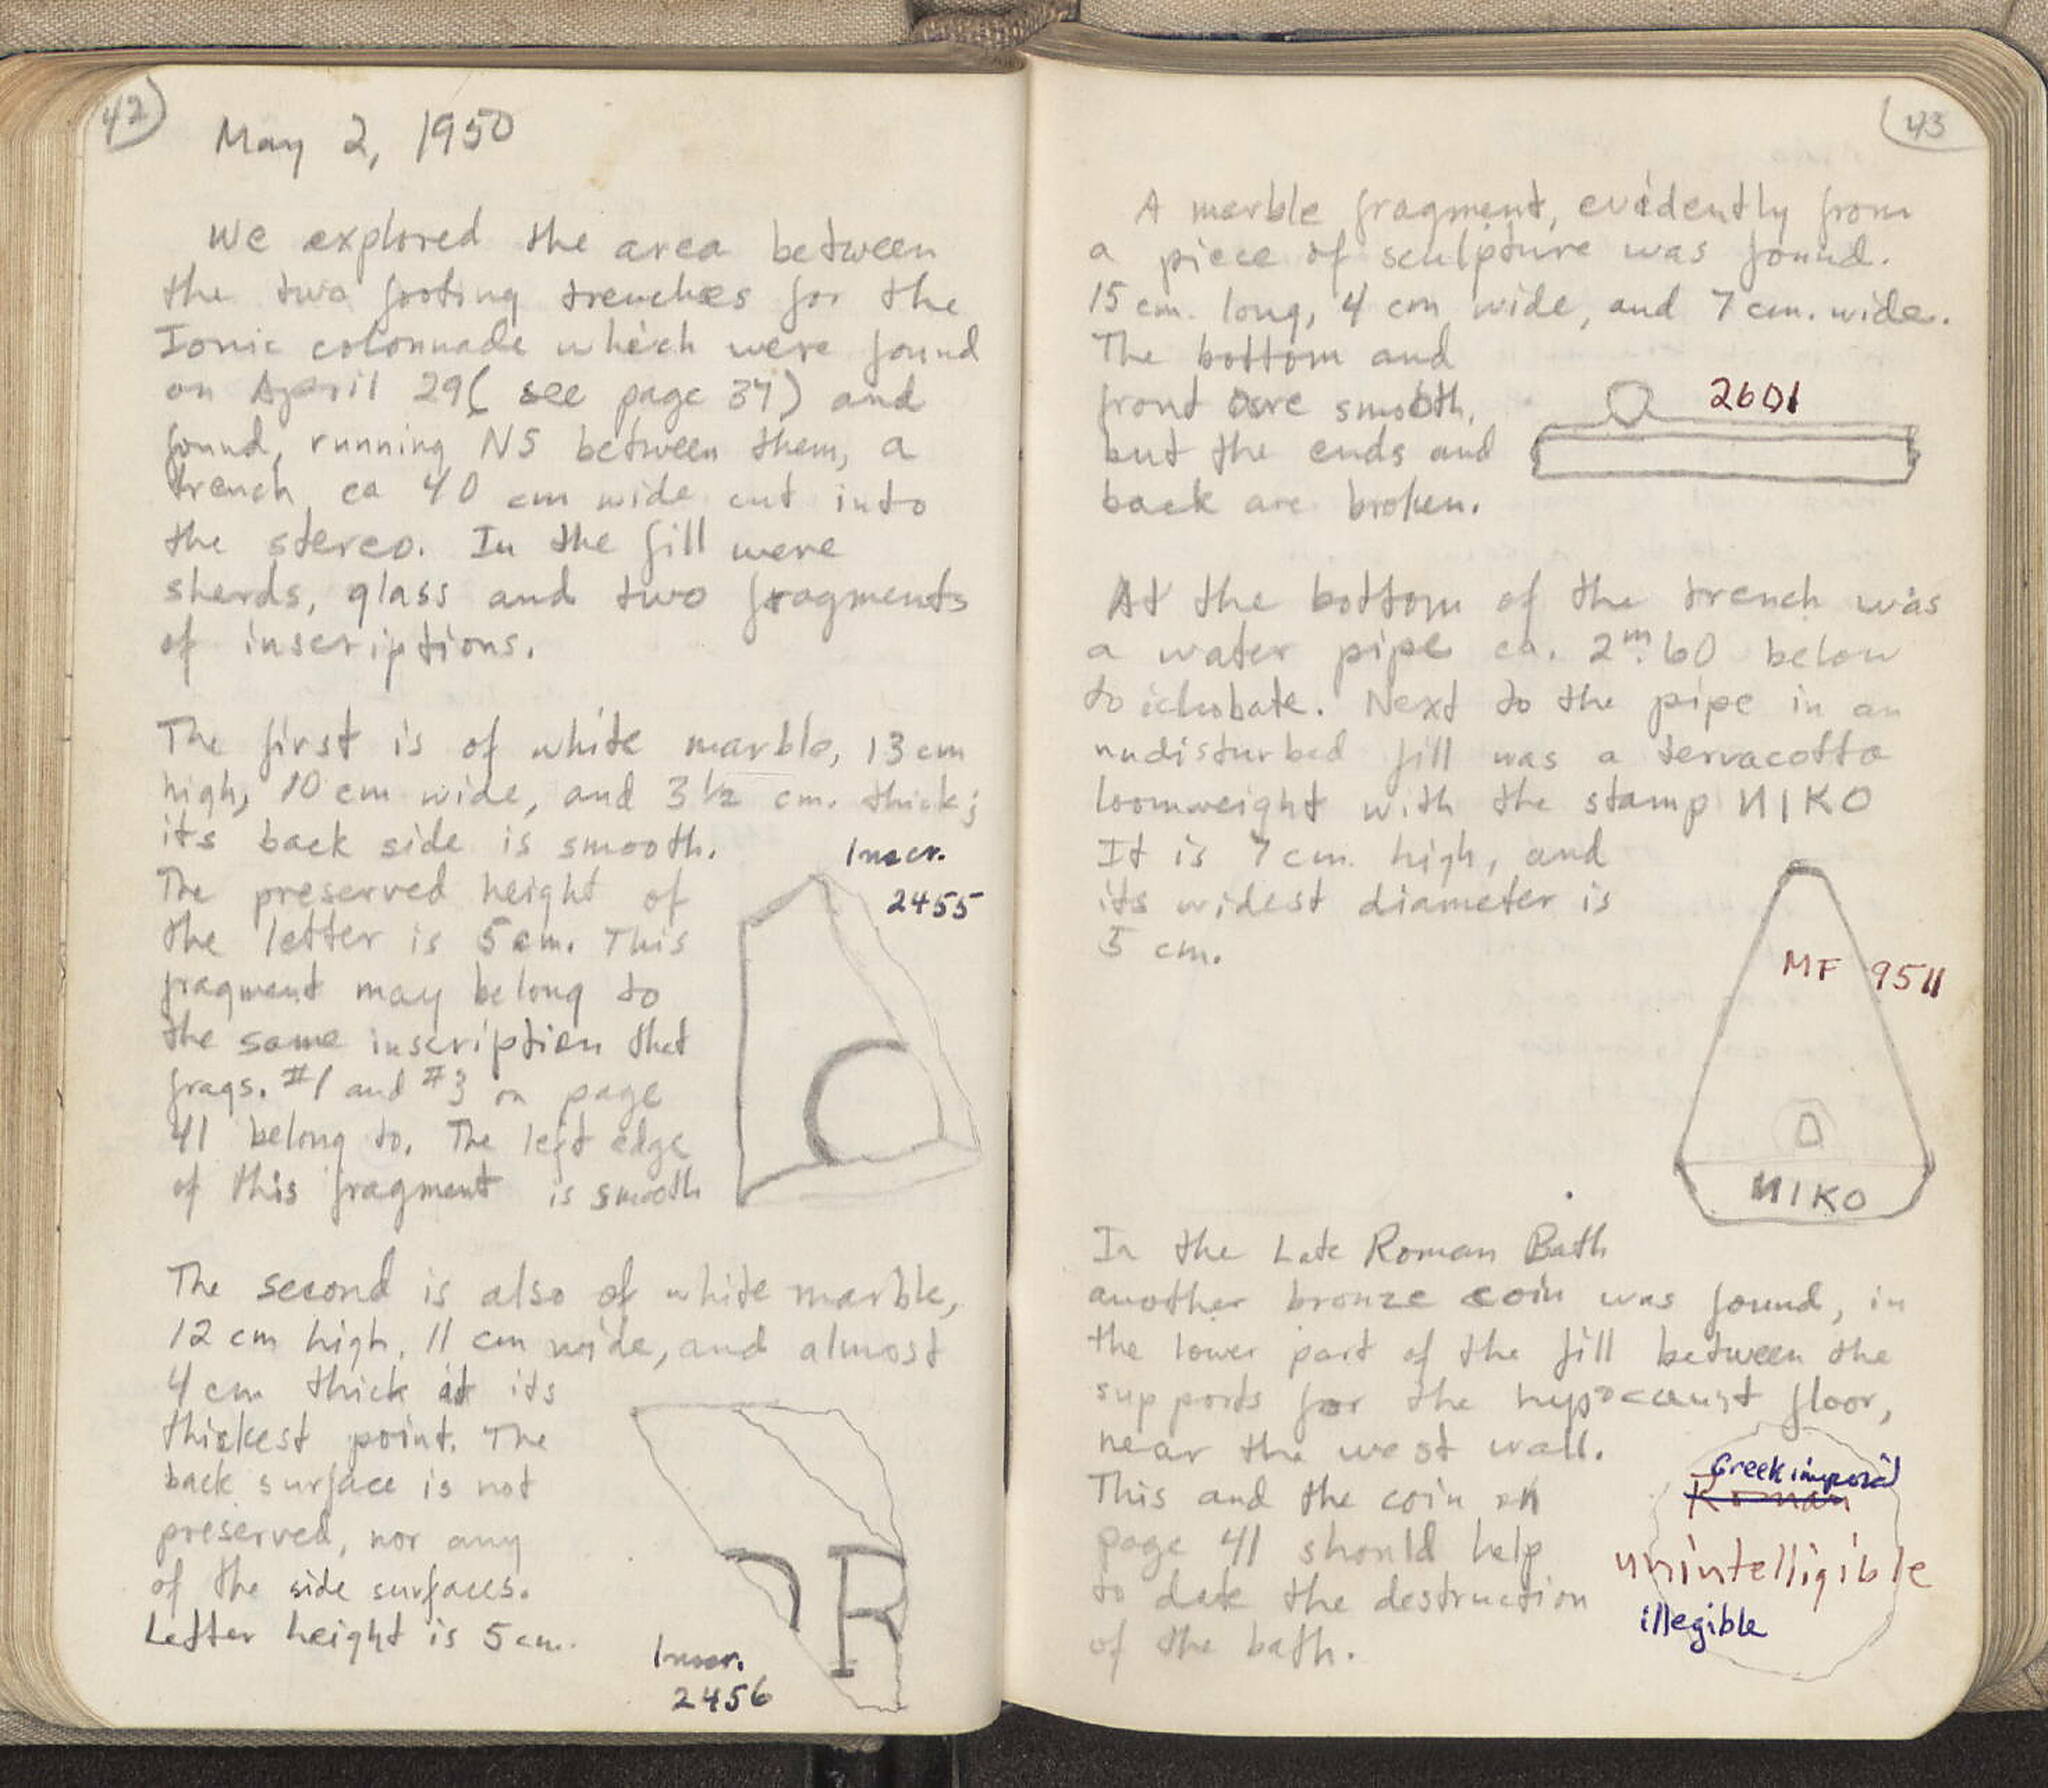 42
May 2, 1950
We explored the area between
the two footing trenches for the
Ionic colonnade which were found
on April 29 (see page 37) and
found, running NS between them, a
trench ca 40 cm wide cut into
the stereo. In the fill were
sherds, glass and two fragments
of inscriptions.
The first is of white marble, 13 cm
high, 10 cm wide, and 3 1/2 cm. thick;
its back side is smooth.
The preserved height of
the letter is 5 cm. This
fragment may belong to
the same inscription that
frags. #1 and #3 on page
41 belong to. The left edge
of this fragment is smooth
Inscr.
2455
The second is also of white marble,
12 cm high, 11 cm wide, and almost
4 cm thick at its
thickest point. The
back surface is not
preserved, nor any
of the side surfaces.
Letter height is 5 cm.
R
Inscr.
2456
43
A marble fragment, evidently from
a piece of sculpture was found.
15 cm. long, 4 cm wide, and 7 cm. wide.
The bottom and
front are smooth,
but the ends and
back are broken.
2601
At the bottom of the trench was
a water pipe ca. 2m.60 below
toichobate. Next to the pipe in an
undisturbed fill was a terracotta
loomweight with the stamp NIKO
It is 7 cm. high, and
its widest diameter is
5 cm.
MF 9511
NIKO
In the Late Roman Bath
another bronze coin was found, in
the lower part of the fill between the
supports for the hypocaust floor,
near the west wall.
This and the coin on
page 41 should help
to date the destruction
of the bath.
Greek imperial
Roman
unintelligible
illegible